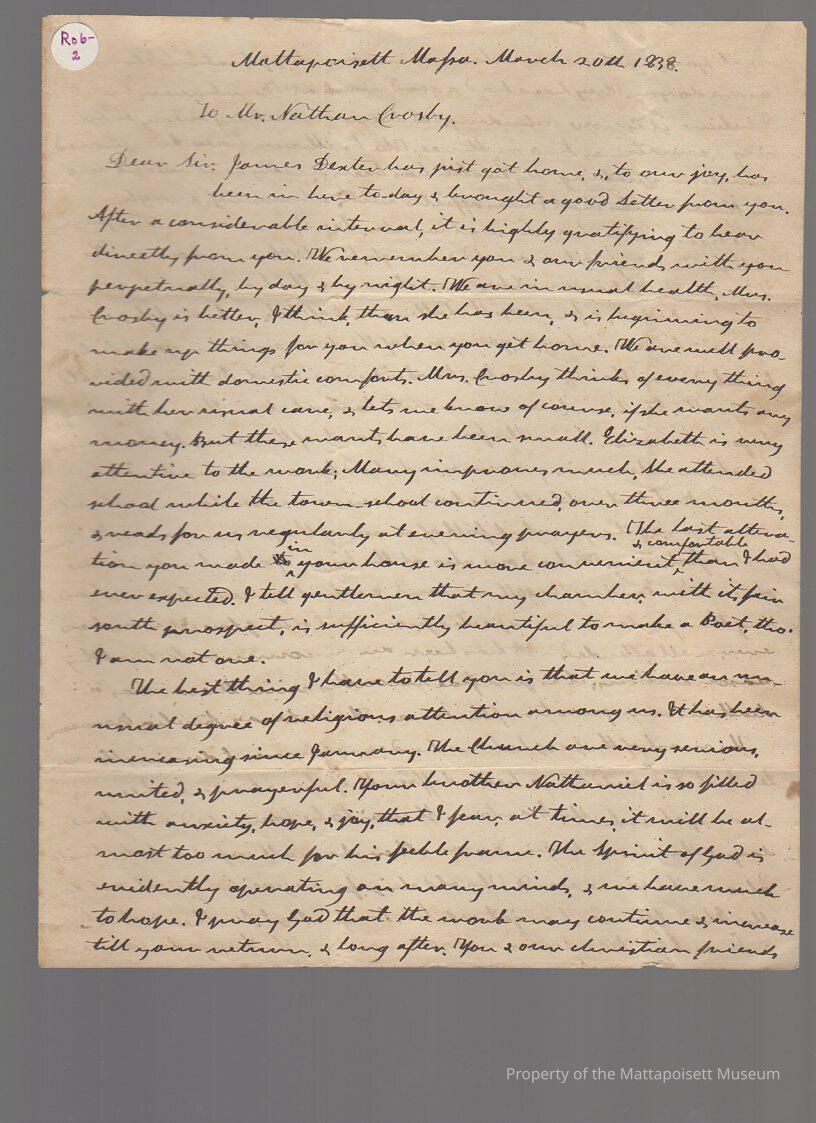 Rob-
2
Mattapoisett Massa. March 20th 1838.
To Mr. Nathan Crosby.
Dear Sir. James Dexter has just got home, &, to our joy, has
been in here to-day & brought a good Letter from you.
After a considerable interval, it is highly gratifying to hear
directly from you. We remember you & our friends with you
perpetually, by day & by night. We are in usual health, Mrs.
Crosby is better, I think, than she has been, & is beginning to
make up things for you when you get home. We are well pro-
vided with domestic comforts. Mrs. Crosby thinks of every thing
with her usual care, & lets me know of course, if she wants any
money. But these wants have been small. Elizabeth is very
attentive to the work; Mary improves much, She attended
school while the town-school continued, over three months,
& reads for us regularly at evening prayers. The last altera-
tion you made in your house is more convenient & comfortable than I had
ever expected. I tell gentlemen that my chamber, with its fair
south prospect, is sufficiently beautiful to make a Poet, tho.
I am not one.
The best thing I have to tell you is that we have an un-
usual degree of religious attention among us. It has been
increasing since January. The Church are very serious,
united, & prayerful. Your brother Nathaniel is so filled
with anxiety, hope, & joy, that I fear, at times, it will be al-
most too much for his feeble frame. The Spirit of God is
evidently operating on many minds, & we have much
to hope. I pray God that the work may continue & increase
till your return, & long after. You & our christian friends
Property of the Mattapoisett Museum